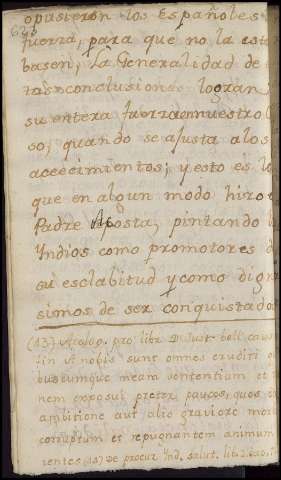 opusieron los Españoles
fuerza, para que no la
basen; La Generalidad de
tas conclusiones logran
su entera fuerza en nuestro
so, quando se ajusta a los
acecimientos; y esto es lo
que en algun modo hizo e
Padre Acosta, pintando
Yndios como promotores d
su esclabitud y como dign
simos de ser conquistados
(43) Apolog. pro libr. D. Just. bell. caus
sunt omnes eruditi
buscumque meam sententiam et
nem exposui preter paucos, quos
ambitione aut alio graviore mor
corruptum et repugnantem animum
de procur. Ind. salut. lib. 2. cap.